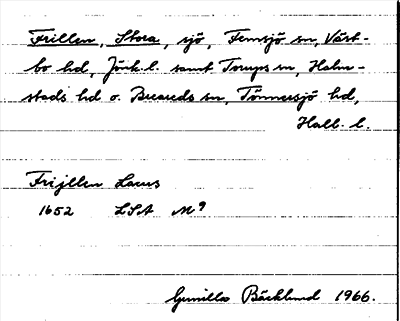 Frillen, Stora, sjö, Femsjö sn, Väst-
bo hd, Jönk. l. samt Torups sn, Halm-
stads hd o. Breareds sn, Tönnersjö hd,
Hall. l.
Frijllen Lacus
1652 LSA M9
Gunilla Bäcklund 1966.